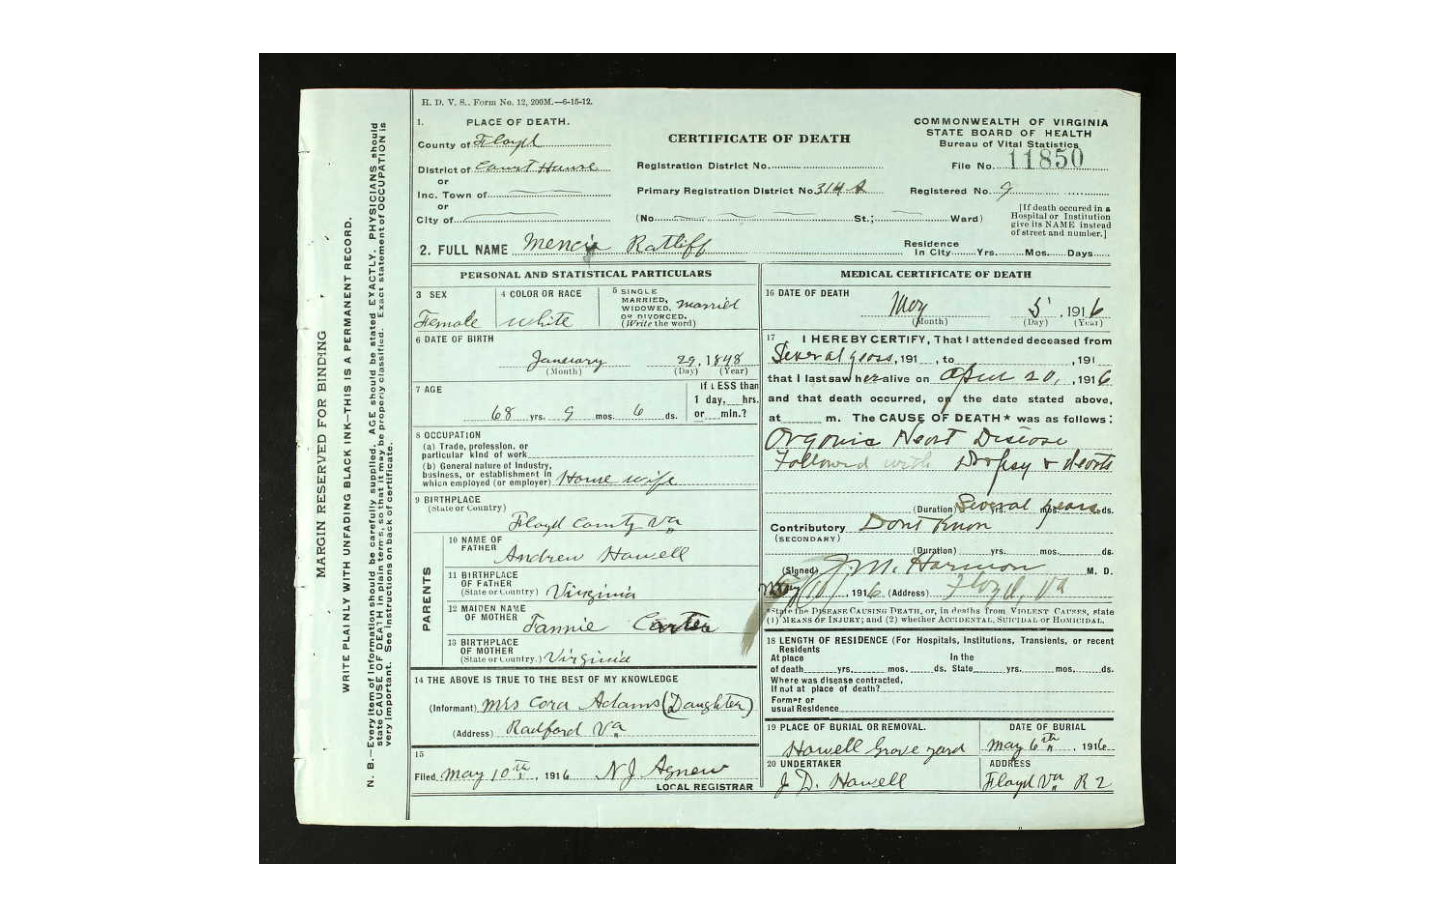 H. D. V. S.. Form No. 12, 200M.—6-15-12.
1. PLACE OF DEATH.
County of Floyd
District of Court House
or
Inc. Town of
or
City of
CERTIFICATE OF DEATH
Registration District No.
Primary Registration District No. 314 A
(No. St.; Ward)
COMMONWEALTH OF VIRGINIA
STATE BOARD OF HEALTH
Bureau of Vital Statistics
File No. 11850
Registered No. 9
[If death occured in a
Hospital or Institution
give its NAME instead
of street and number.]
2. FULL NAME Ratliff
Residence
In City Yrs. Mos. Days
PERSONAL AND STATISTICAL PARTICULARS
3 SEX
Female
4 COLOR OR RACE
White
5 SINGLE
MARRIED,
WIDOWED,
OR DIVORCED.
(Write the word)
Married
6 DATE OF BIRTH
January 29, 1848
(Month) (Day) (Year)
7 AGE
68 yrs. 9 mos. 6 ds.
If LESS than
1 day, hrs.
or min.?
8 OCCUPATION
(a) Trade, profession, or
particular kind of work
(b) General nature of Industry,
business, or establishment in
which employed (or employer) House wife
9 BIRTHPLACE
(State or Country)
Floyd County Va
PARENTS
10 NAME OF
FATHER
Andrew Howell
11 BIRTHPLACE
OF FATHER
(State or Country) Virginia
12 MAIDEN NAME
OF MOTHER
Fannie Carter
13 BIRTHPLACE
OF MOTHER
(State or Country.) Virginia
14 THE ABOVE IS TRUE TO THE BEST OF MY KNOWLEDGE
(Informant) Mrs Cora Adams (Daughter)
(Address) Radford Va
15
Filed May 10th, 1916 N J Agnew
LOCAL REGISTRAR
MEDICAL CERTIFICATE OF DEATH
16 DATE OF DEATH
May 5, 1916
(Month) (Day) (Year)
17 I HEREBY CERTIFY, That I attended deceased from
Several years, 191 , to , 191
that I last saw her alive on April 20, , 1916
and that death occurred, on the date stated above,
at m. The CAUSE OF DEATH* was as follows:
Organic Heart Disease
Followed with Dropsy &
(Duration) Several years mos. ds.
Contributory Dont Know
(SECONDARY)
(Duration) yrs. mos. ds.
(Signed) J. M. Harmon M. D.
May 10, 1916 (Address) Floyd, Va
*State the DISEASE CAUSING DEATH, or, in deaths from VIOLENT CAUSES, state
(1) MEANS OF INJURY; and (2) whether ACCIDENTAL, SUICIDAL or HOMICIDAL.
18 LENGTH OF RESIDENCE (For Hospitals, Institutions, Transients, or recent
Residents
At place In the
of death yrs. mos. ds. State yrs. mos. ds.
Where was disease contracted,
If not at place of death?
Former or
usual Residence
19 PLACE OF BURIAL OR REMOVAL.
Howell Grave yard
DATE OF BURIAL
May 6th, 1916
20 UNDERTAKER
J D. Howell
ADDRESS
Floyd Va R 2
MARGIN RESERVED FOR BINDING
WRITE PLAINLY WITH UNFADING BLACK INK—THIS IS A PERMANENT RECORD.
N. B.—Every item of information should be carefully supplied. AGE should be stated EXACTLY. PHYSICIANS should
state CAUSE OF DEATH in plain terms, so that it may be properly classified. Exact statement of OCCUPATION is
very important. See instructions on back of certificate.